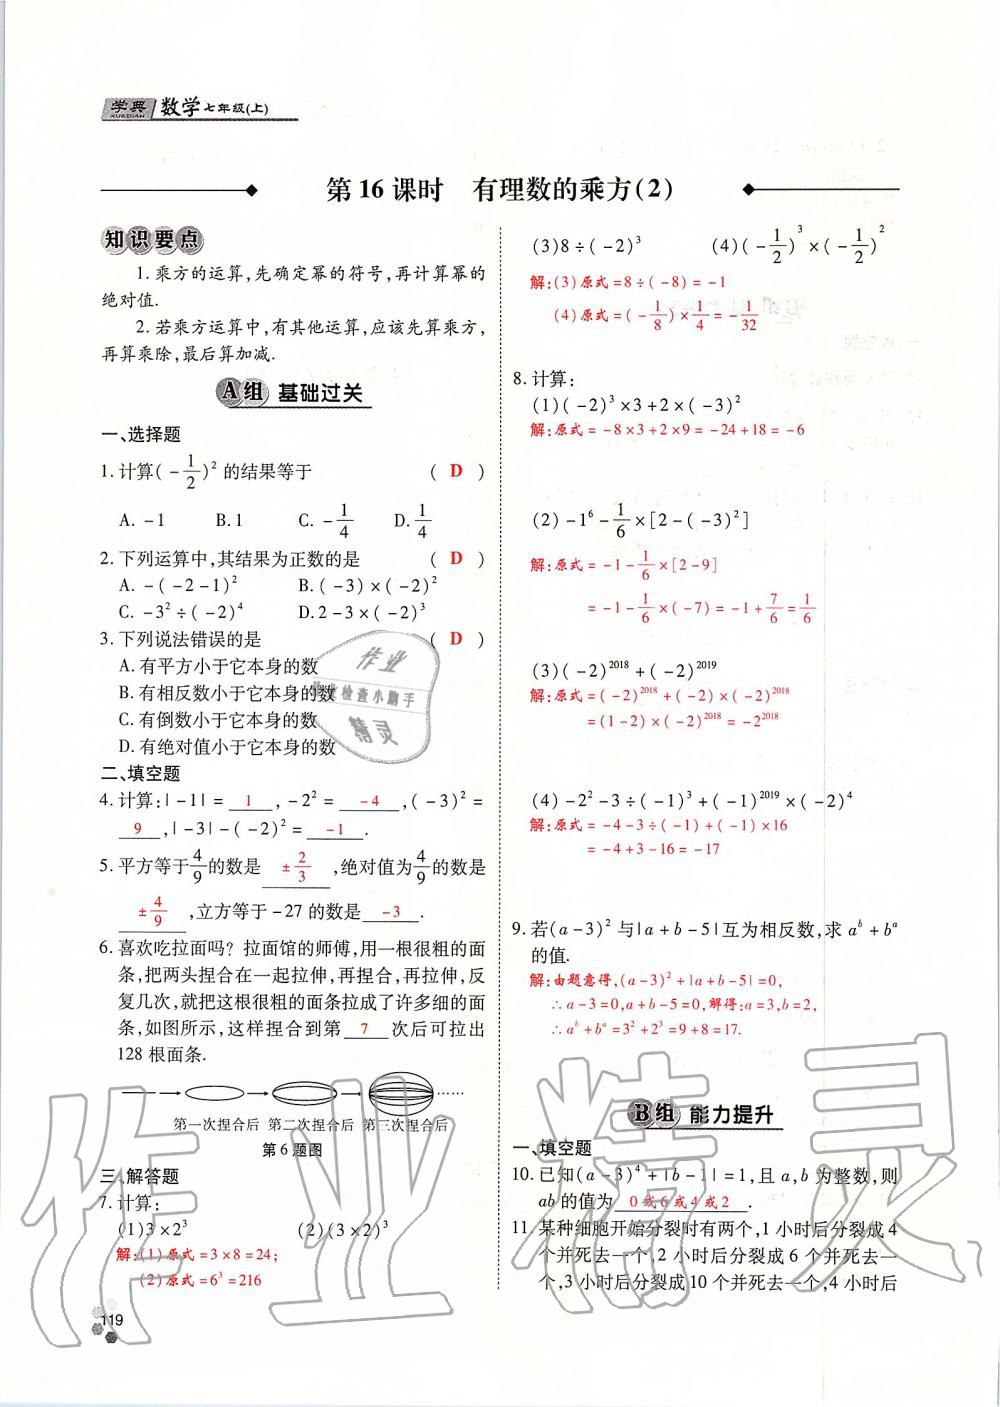 学典 数学七年级(上)
XUEDIAN
第16课时　有理数的乘方(2)
知识要点
1. 乘方的运算,先确定幂的符号,再计算幂的
绝对值.
2. 若乘方运算中,有其他运算,应该先算乘方,
再算乘除,最后算加减.
A组 基础过关
一、选择题
1. 计算(-1/2)² 的结果等于 ( D )
A. -1 B. 1 C. -1/4 D. 1/4
2. 下列运算中,其结果为正数的是 ( D )
A. -(-2-1)² B. (-3)×(-2)²
C. -3²÷(-2)⁴ D. 2-3×(-2)³
3. 下列说法错误的是 ( D )
A. 有平方小于它本身的数
B. 有相反数小于它本身的数
C. 有倒数小于它本身的数
D. 有绝对值小于它本身的数
二、填空题
4. 计算:|-1|= 1 ,-2²= -4 ,(-3)²=
9 ,|-3|-(-2)²= -1 .
5. 平方等于4/9的数是 ±2/3 ,绝对值为4/9的数是
±4/9 ,立方等于-27的数是 -3 .
6. 喜欢吃拉面吗? 拉面馆的师傅,用一根很粗的面
条,把两头捏合在一起拉伸,再捏合,再拉伸,反
复几次,就把这根很粗的面条拉成了许多细的面
条,如图所示,这样捏合到第 7 次后可拉出
128根面条.
……
第一次捏合后 第二次捏合后 第三次捏合后
第6题图
三、解答题
7. 计算:
(1)3×2³ (2)(3×2)³
解:(1)原式=3×8=24;
(2)原式=6³=216
119
(3)8÷(-2)³ (4)(-1/2)³×(-1/2)²
解:(3)原式=8÷(-8)=-1
(4)原式=(-1/8)×1/4=-1/32
8. 计算:
(1)(-2)³×3+2×(-3)²
解:原式=-8×3+2×9=-24+18=-6
(2)-1⁶-1/6×[2-(-3)²]
解:原式=-1-1/6×[2-9]
=-1-1/6×(-7)=-1+7/6=1/6
(3)(-2)²⁰¹⁸+(-2)²⁰¹⁹
解:原式=(-2)²⁰¹⁸+(-2)×(-2)²⁰¹⁸
=(1-2)×(-2)²⁰¹⁸=-2²⁰¹⁸
(4)-2²-3÷(-1)³+(-1)²⁰¹⁹×(-2)⁴
解:原式=-4-3÷(-1)+(-1)×16
=-4+3-16=-17
9. 若(a-3)²与|a+b-5|互为相反数,求aᵇ+bᵃ
的值.
解:由题意得,(a-3)²+|a+b-5|=0,
∴a-3=0,a+b-5=0,解得:a=3,b=2,
∴aᵇ+bᵃ=3²+2³=9+8=17.
B组 能力提升
一、填空题
10. 已知(a-3)⁴+|b-1|=1,且a,b为整数,则
ab的值为 0或6或4或2 .
11. 某种细胞开始分裂时有两个,1小时后分裂成4
个并死去一个,2小时后分裂成6个并死去一
个,3小时后分裂成10个并死去一个,4小时后
作业
作业检查小助手
精灵
作业精灵